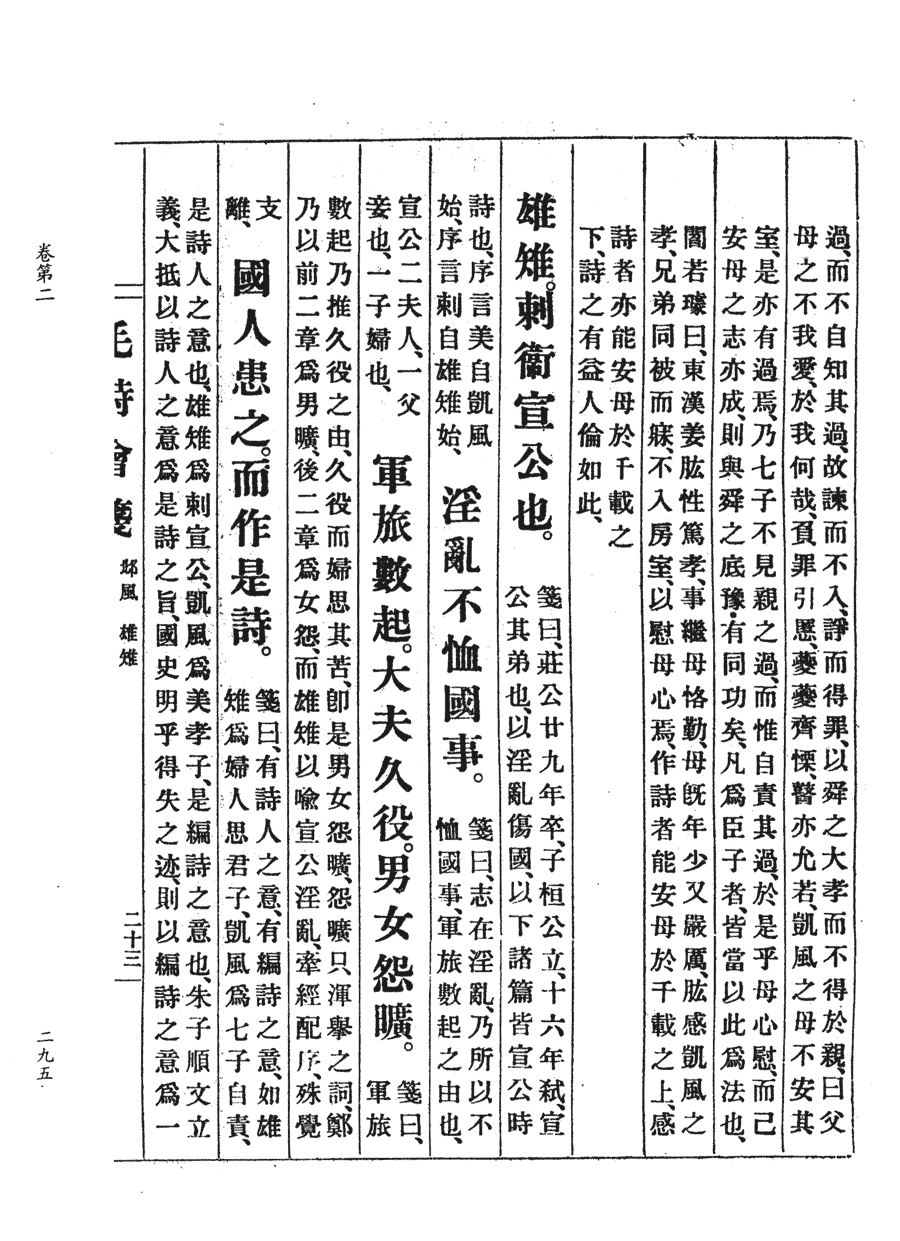 過、而不自知其過、故諫而不入、諍而得罪、以舜之大孝而不得於親、曰父
母之不我愛、於我何哉、負罪引慝、夔夔齊慄、瞽亦允若、凱風之母不安其
室、是亦有過焉、乃七子不見親之過、而惟自責其過、於是乎母心慰、而己
安母之志亦成、則與舜之底豫、有同功矣、凡爲臣子者、皆當以此爲法也、
閻若璩曰、東漢姜肱性篤孝、事繼母恪勤、母既年少又嚴厲、肱感凱風之
孝、兄弟同被而寐、不入房室、以慰母心焉、作詩者能安母於千載之上、感
詩者亦能安母於千載之
下、詩之有益人倫如此、
雄雉。刺衞宣公也。
箋曰、莊公廿九年卒、子桓公立、十六年弒、宣
公其弟也、以淫亂傷國、以下諸篇皆宣公時
詩也、序言美自凱風
始、序言刺自雄雉始、
淫亂不恤國事。
箋曰、志在淫亂、乃所以不
恤國事、軍旅數起之由也、
宣公二夫人、一父
妾也、一子婦也、
軍旅數起。大夫久役。男女怨曠。
箋曰、
軍旅
數起乃推久役之由、久役而婦思其苦、卽是男女怨曠、怨曠只渾擧之詞、鄭
乃以前二章爲男曠、後二章爲女怨、而雄雉以喩宣公淫亂、牽經配序、殊覺
支
離、
國人患之。而作是詩。
箋曰、有詩人之意、有編詩之意、如雄
雉爲婦人思君子、凱風爲七子自責、
是詩人之意也、雄雉爲刺宣公、凱風爲美孝子、是編詩之意也、朱子順文立
義、大抵以詩人之意爲是詩之旨、國史明乎得失之迹、則以編詩之意爲一
毛詩會箋 邶風 雄雉
二十三
卷第二
二九五